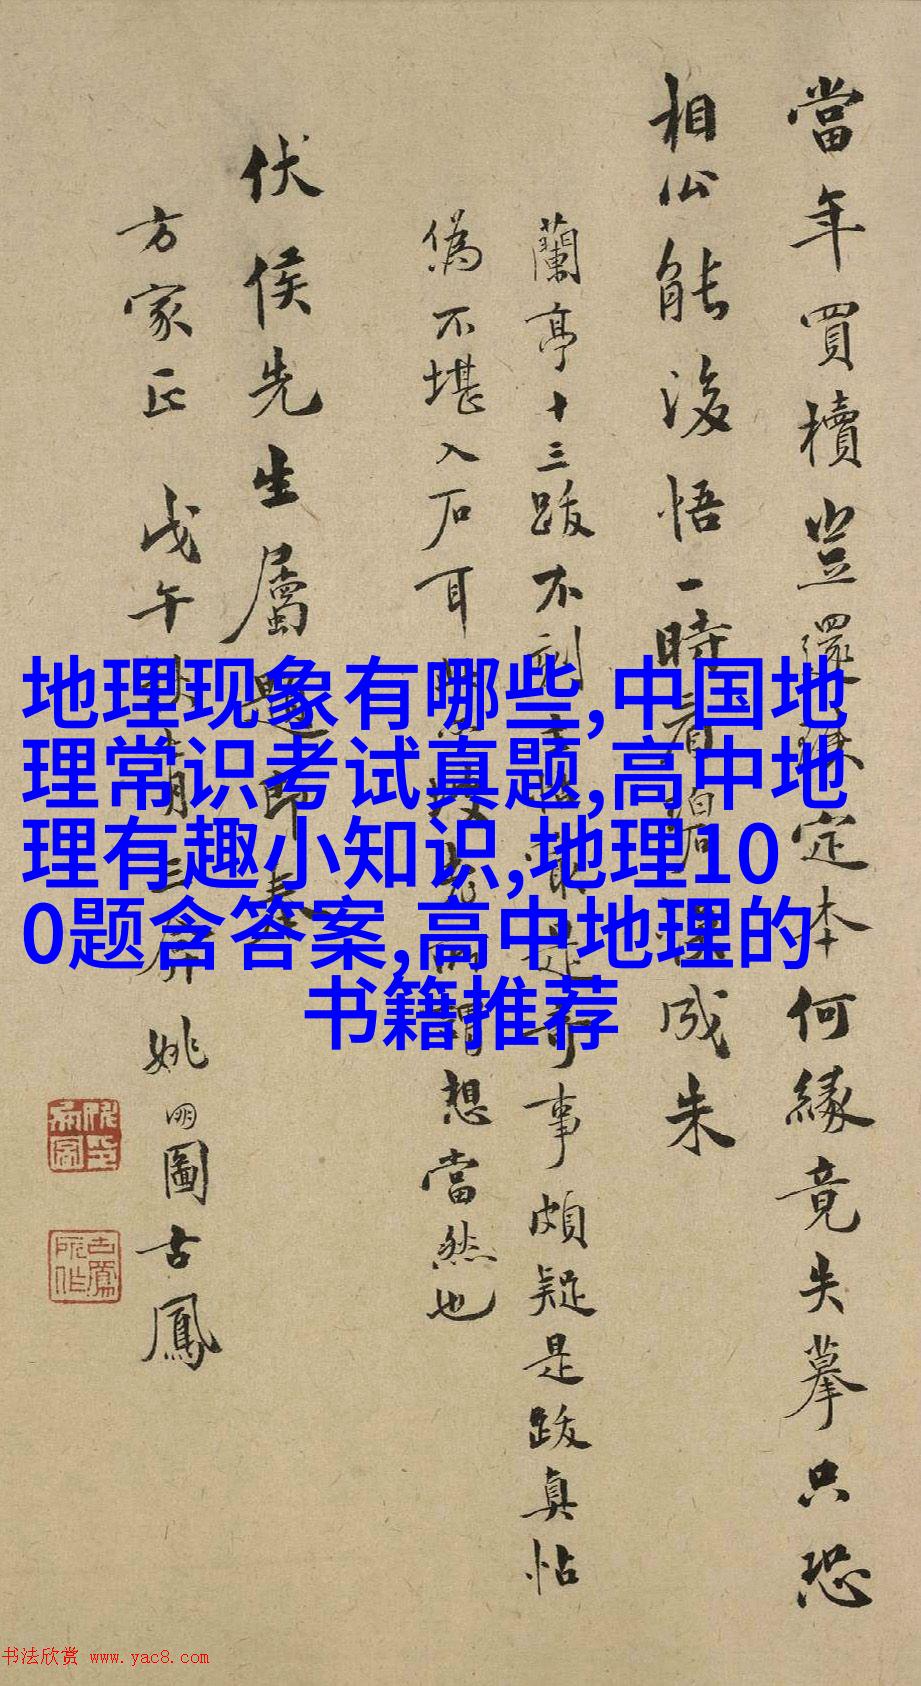 當年買櫝豈還珠定本何緣竟失摹只恐
相公能後悟一時看碧成朱
蘭亭十三跋不刻是奇事頗疑是跋真帖
偽不堪入石耳想當然也
伏侯先生屬題即奉
方家正 戊午秋 姚朙圖古鳳
地理现象有哪些,中国地
理常识考试真题,高中地
理有趣小知识,地理10
0题含答案,高中地理的
书籍推荐
书法欣赏 www.yac8.com